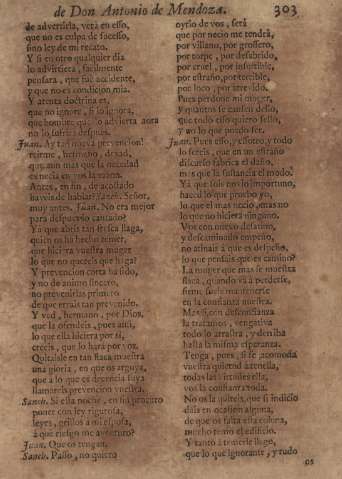 de Don Antonio de Mendoza. 303
de advertirla, verà en esso,
que no es culpa de sucesso,
sino ley de mi recato.
Y si en otro qualquier dia
lo advirtiera, facilmente
pensara, que fue accidente,
y que no es condicion mia.
Y atenta doctrina es,
que no ignore, si lo ignora,
que hombre que lo advierta aora
no lo sufrirà despues.
Juan. Ay tan nueva prevencion!
reirme, hermano, dexad,
que aun mas que la necedad
es necia en vos la razon.
Antes, en fin, de acostado
haveis de hablar? Sanch. Señor,
muy antes. Juan. No era mejor
para despues lo cansado?
Ya que abris tan fresca llaga,
quien os ha hecho temer,
que hiciera vuestra muger
lo que no quereis que haga?
Y prevencion corta ha sido,
y no de animo sincero,
no prevenirlas primero
de que erràis tan prevenido.
Y ved, hermano, por Dios,
que la ofendeis, pues aqui,
lo que ella hiciera por sì,
creeis, que lo harà por vos.
Quitaisle en tan flaca muestra
una gloria, en que os arguya,
que à lo que es decencia suya
llamareis prevencion vuestra.
Sanch. Si esta noche, en su
poner con ley rigurosa,
leyes, grillos à mi esposa,
à què riesgo me aventuro?
Juan. Que os tengan.
Sanch. Passo, no quiero
oyrlo de vos, serà
que por necio me tendrà,
por villano, por grossero,
por torpe, por desabrido,
por cruel, por insufrible,
por estraño, por terrible,
por loco, por atrevido.
Pues perdone mi muger,
y quantos se cansen desso,
que todo esso quiero sello,
y no lo que puedo ser.
Juan. Pues esso, y essotro, y todo
lo sereis, que en un estraño
discurso fabrica el daño,
mas que la sustancia el modo.
Yà que sois no lo importuno,
haced lo que proprio yo,
lo que el mas necio, mas no
lo que no hiciera ninguno.
Vos con nuevo desatino,
y descaminado empeño,
no atinais à que es despeño,
lo que pensais que es camino?
La muger que mas se muestra
flaca, quando và à perderse,
siente suele mantenerse
en la confianza nuestra.
Mas si con desconfianza
la tratamos, vengativa
todo lo arrastra, y derriba
hasta la misma esperanza.
Tenga, pues, si se acomoda
vuestra quietud à tenella,
todas las virtudes ella,
vos la confianza toda.
No os la quiteis, que si indicio
dais en ocasion alguna,
de que os falta esta coluna,
mucho temo el edificio.
Y tanto à tenerle llego,
que lo que ignorante, y rudo
os